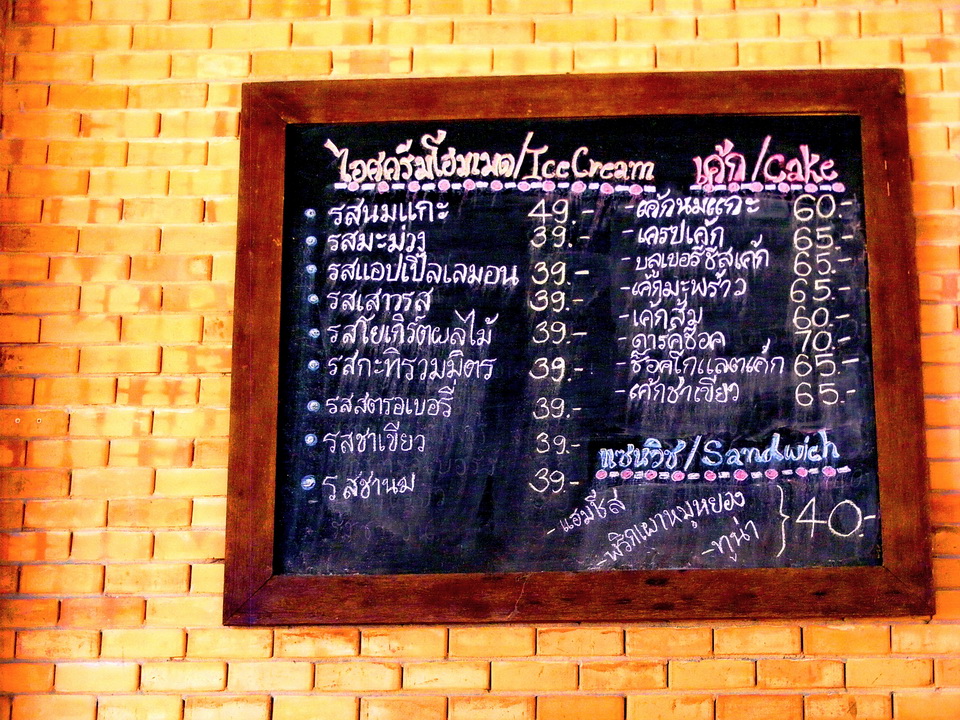 ไอศครีมโฮมเมด/IceCream
รสนมแกะ 49.-
รสมะม่วง 39.-
รสแอปเปิ้ลเลมอน 39.-
รสเสาวรส 39.-
รสโยเกิร์ตผลไม้ 39.-
รสกะทิรวมมิตร 39.-
รสสตรอเบอรี่ 39.-
รสชาเขียว 39.-
รสชานม 39.-
เค้ก/Cake
-เค้กนมแกะ 60.-
-เครปเค้ก 65.-
-บลูเบอรี่ชีสเค้ก 65.-
-เค้กมะพร้าว 65.-
-เค้กส้ม 60.-
-ดาร์คช็อค 70.-
-ช็อคโกแลตเค้ก 65.-
-เค้กชาเขียว 65.-
แซนวิช/Sandwich
-แฮมชีส
-พริกเผาหมูหยอง } 40.-
-ทูน่า